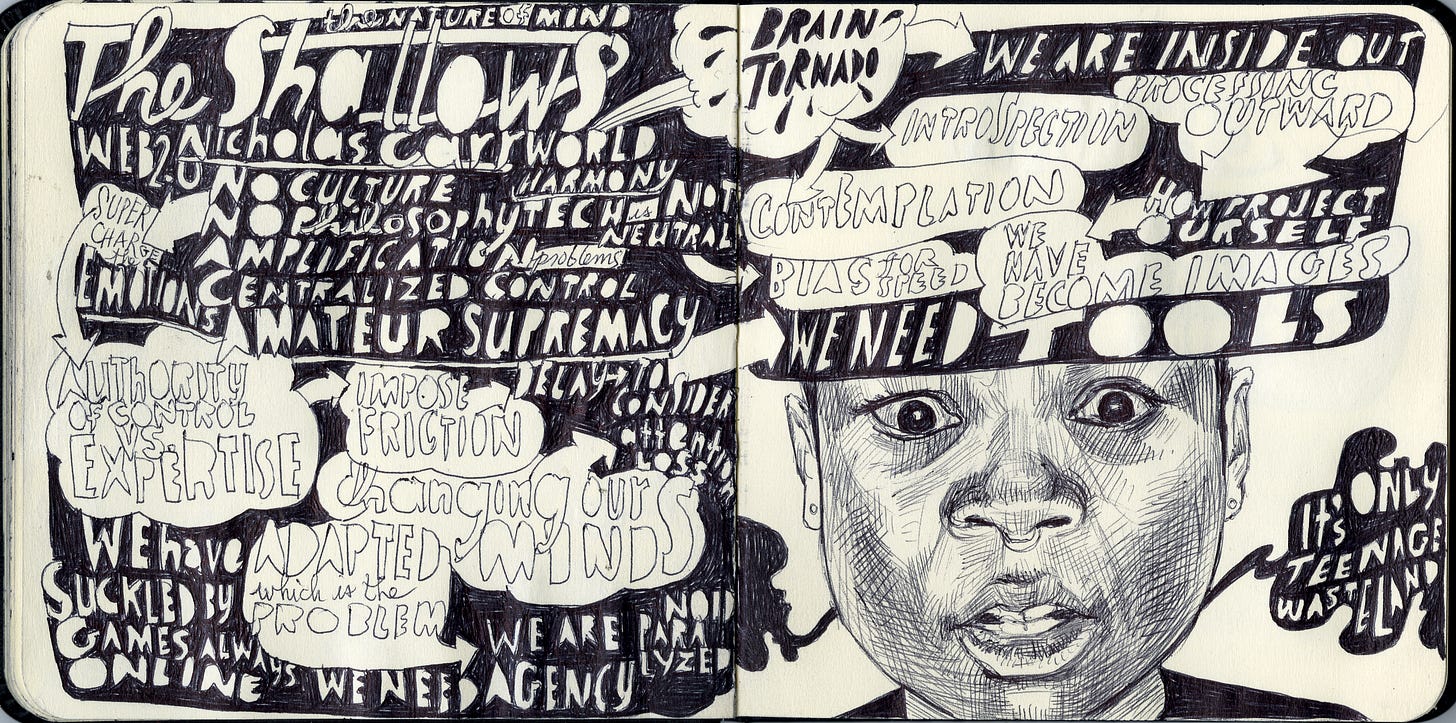 the NATURE OF MIND
The Shallows
WEB 2.0 Nicholas Carr WORLD
NO CULTURE
HARMONY
NO Philosophy TECH is NOT NEUTRAL
AMPLIFICATION problems
SUPER CHARGE the EMOTIONS
CENTRALIZED CONTROL
AMATEUR SUPREMACY
AUTHORITY
OF CONTROL
VS
EXPERTISE
IMPOSE
FRICTION
DELAY → TO
CONSIDER
attention
LOSS
changing our
MINDS
WE have
ADAPTED
which is the
PROBLEM
SUCKLED BY
GAMES ALWAYS
ONLINE
WE NEED AGENCY
WE ARE PARANOID
PARALYZED
BRAIN
TORNADO
WE ARE INSIDE OUT
PROCESSING
OUTWARD
INTROSPECTION
CONTEMPLATION
HOW PROJECT
OURSELF
WE
HAVE
BECOME IMAGES
BIAS FOR SPEED
WE NEED TOOLS
It's ONLY
TEENAGE
WASTELAND